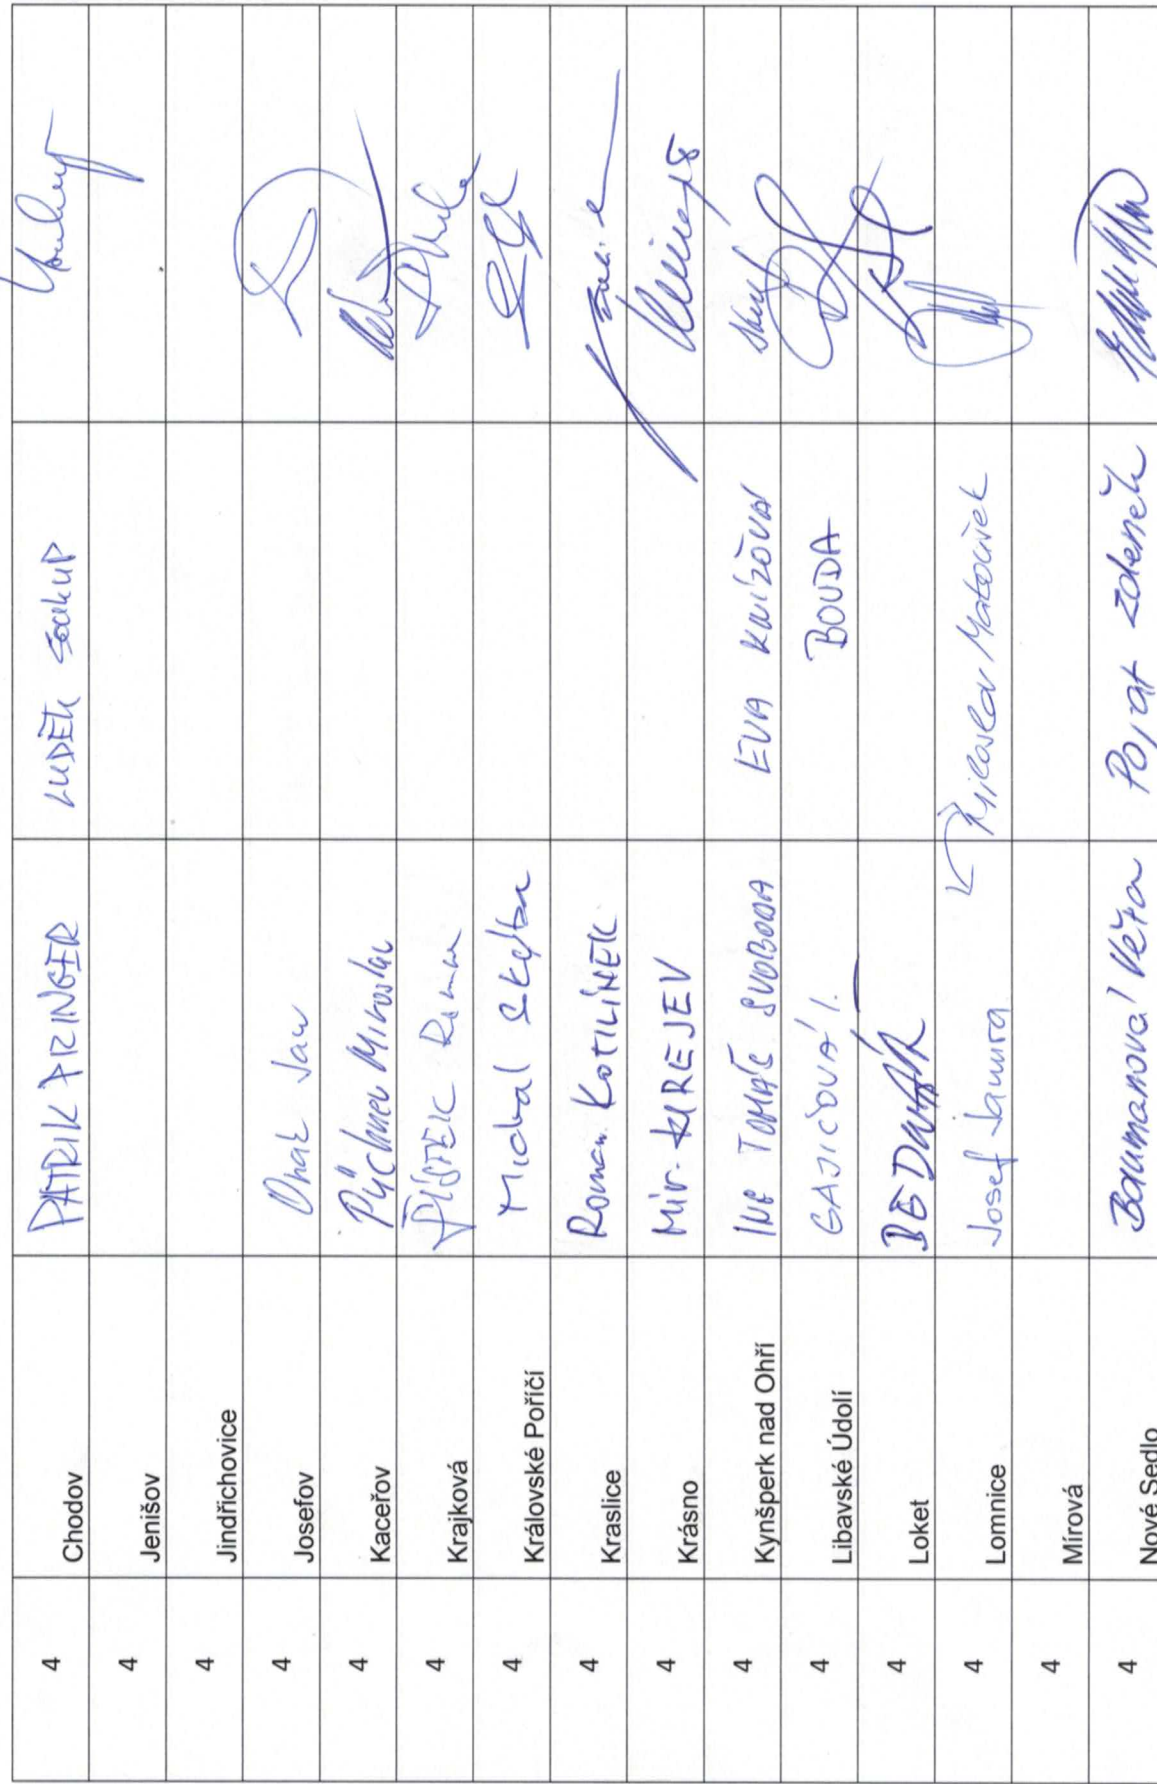 4 Chodov PATRIK PRINGER LUDĚK SOUKUP
4 Jenišov
4 Jindřichovice
4 Josefov Onak Jan
4 Kaceřov Püchner Miroslav
4 Krajková PÍSTEK Roman
4 Královské Poříčí Michal Skýba
4 Kraslice Roman KOTILÍNEK
4 Krásno Mir. KIREJEV
4 Kynšperk nad Ohří ING TOMÁŠ SVOBODA EVA KNÍŽOVÁ
4 Libavské Údolí GAJIČOVÁ BOUDA
4 Loket BEDNÁŘ
4 Lomnice Josef Jamura Miloslav Matoušek
4 Mírová
4 Nové Sedlo Baumanová Věra Pojar Zdeněk